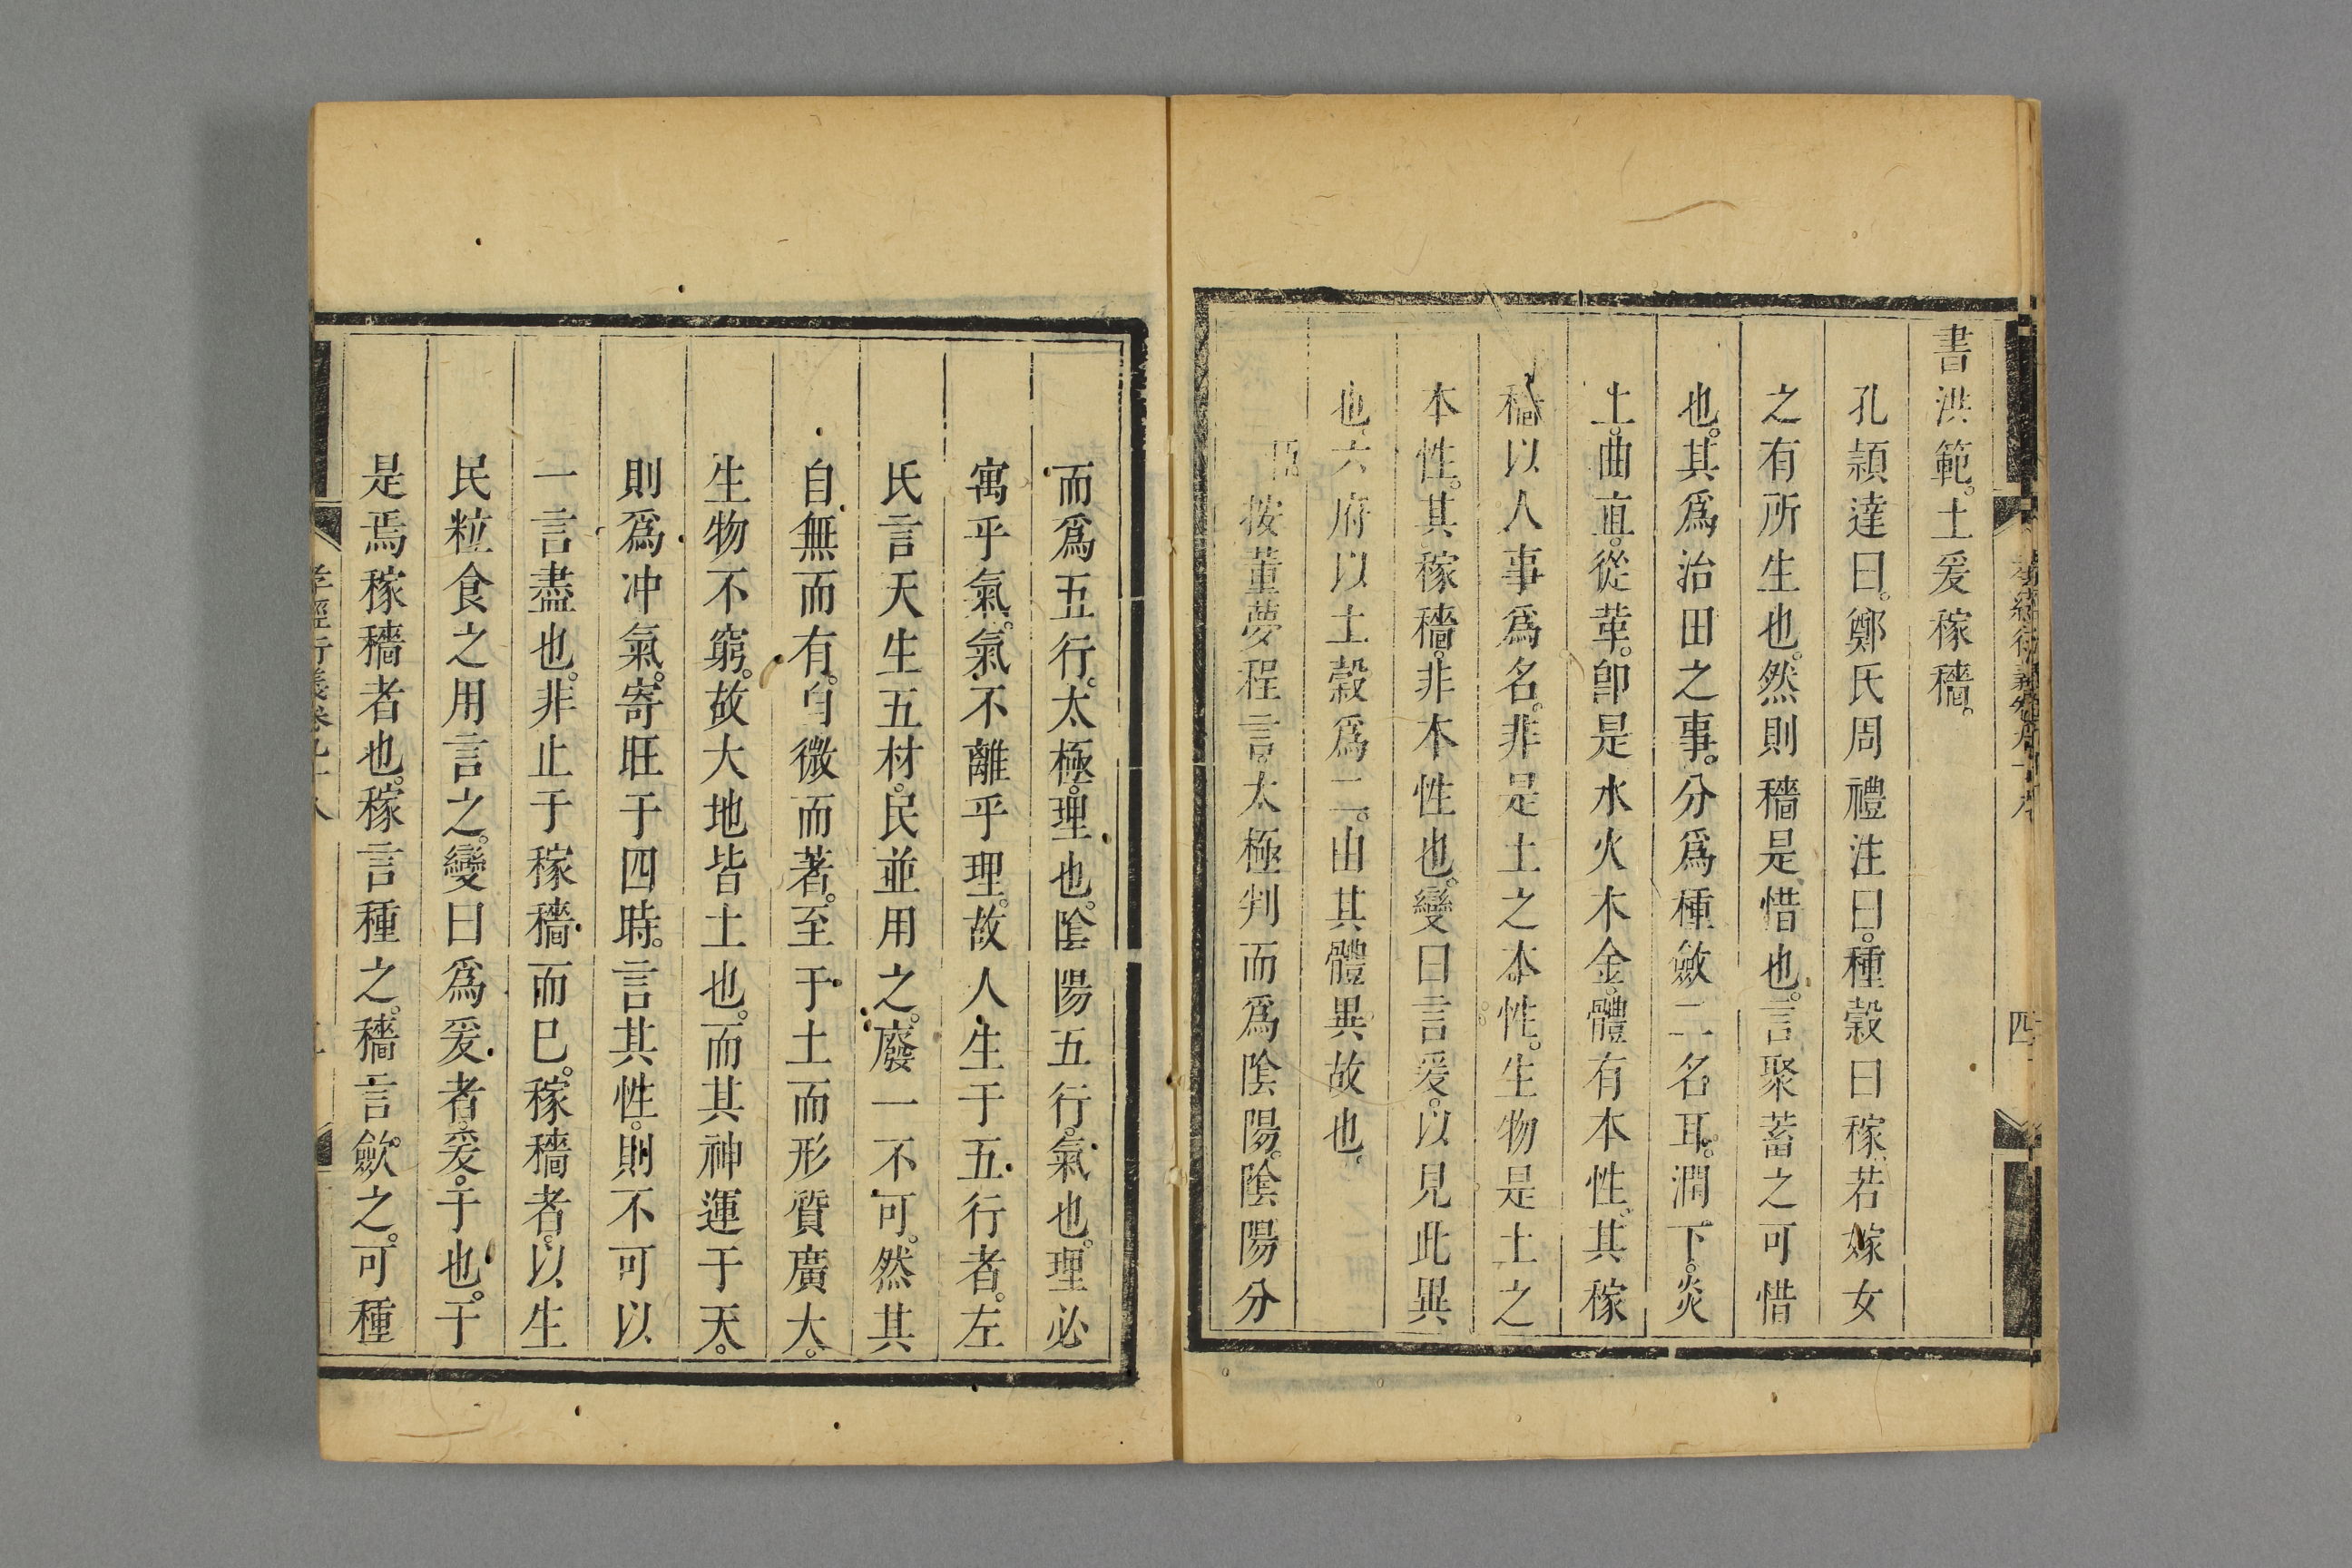 書洪範。土爰稼穡。
孔頴達曰。鄭氏周禮注曰。種穀曰稼。若嫁女
之有所生也。然則穡是惜也。言聚蓄之可惜
也。其爲治田之事。分爲種斂二名耳。潤下。炎
上。曲直。從革。卽是水火木金。體有本性。其稼
穡以人事爲名。非是土之本性。生物是土之
本性。其稼穡。非本性也。變曰言爰。以見此異
也。六府以土穀爲二。由其體異故也。
臣按董夢程言。太極判而爲陰陽。陰陽分
而爲五行。太極。理也。陰陽五行。氣也。理必
寓乎氣。氣不離乎理。故人生于五行者。左
氏言天生五材。民並用之。廢一不可。然其
自無而有。自微而著。至于土而形質廣大。
生物不窮。故大地皆土也。而其神運于天。
則爲冲氣。寄旺于四時。言其性。則不可以
一言盡也。非止于稼穡而巳。稼穡者。以生
民粒食之用言之。變曰爲爰者。爰。于也。于
是焉稼穡者也。稼言種之。穡言斂之。可種
孝經衍義卷九十八
四